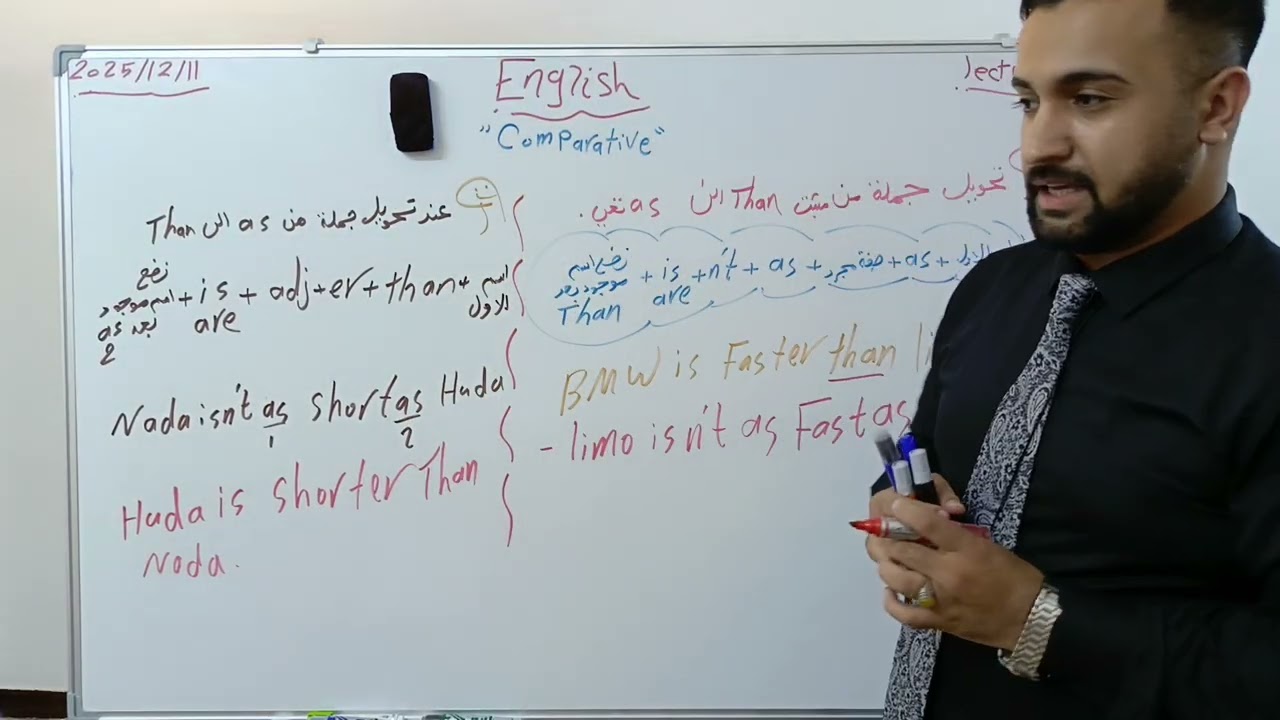 2025/12/11
English
lectu
"Comparative"
تحويل جملة من مثبت Than الى as نفي.
نضع اسم موجود بعد Than + is are + n't + as + صفة مجرد + as + الاول
BMW is Faster than li
- limo isn't as Fast as
عند تحويل جملة من as الى Than
نضع اسم موجود بعد as 2 + is are + adj + er + than + اسم الاول
Nada isn't as short as Huda
1 2
Huda is shorter Than
Nada.